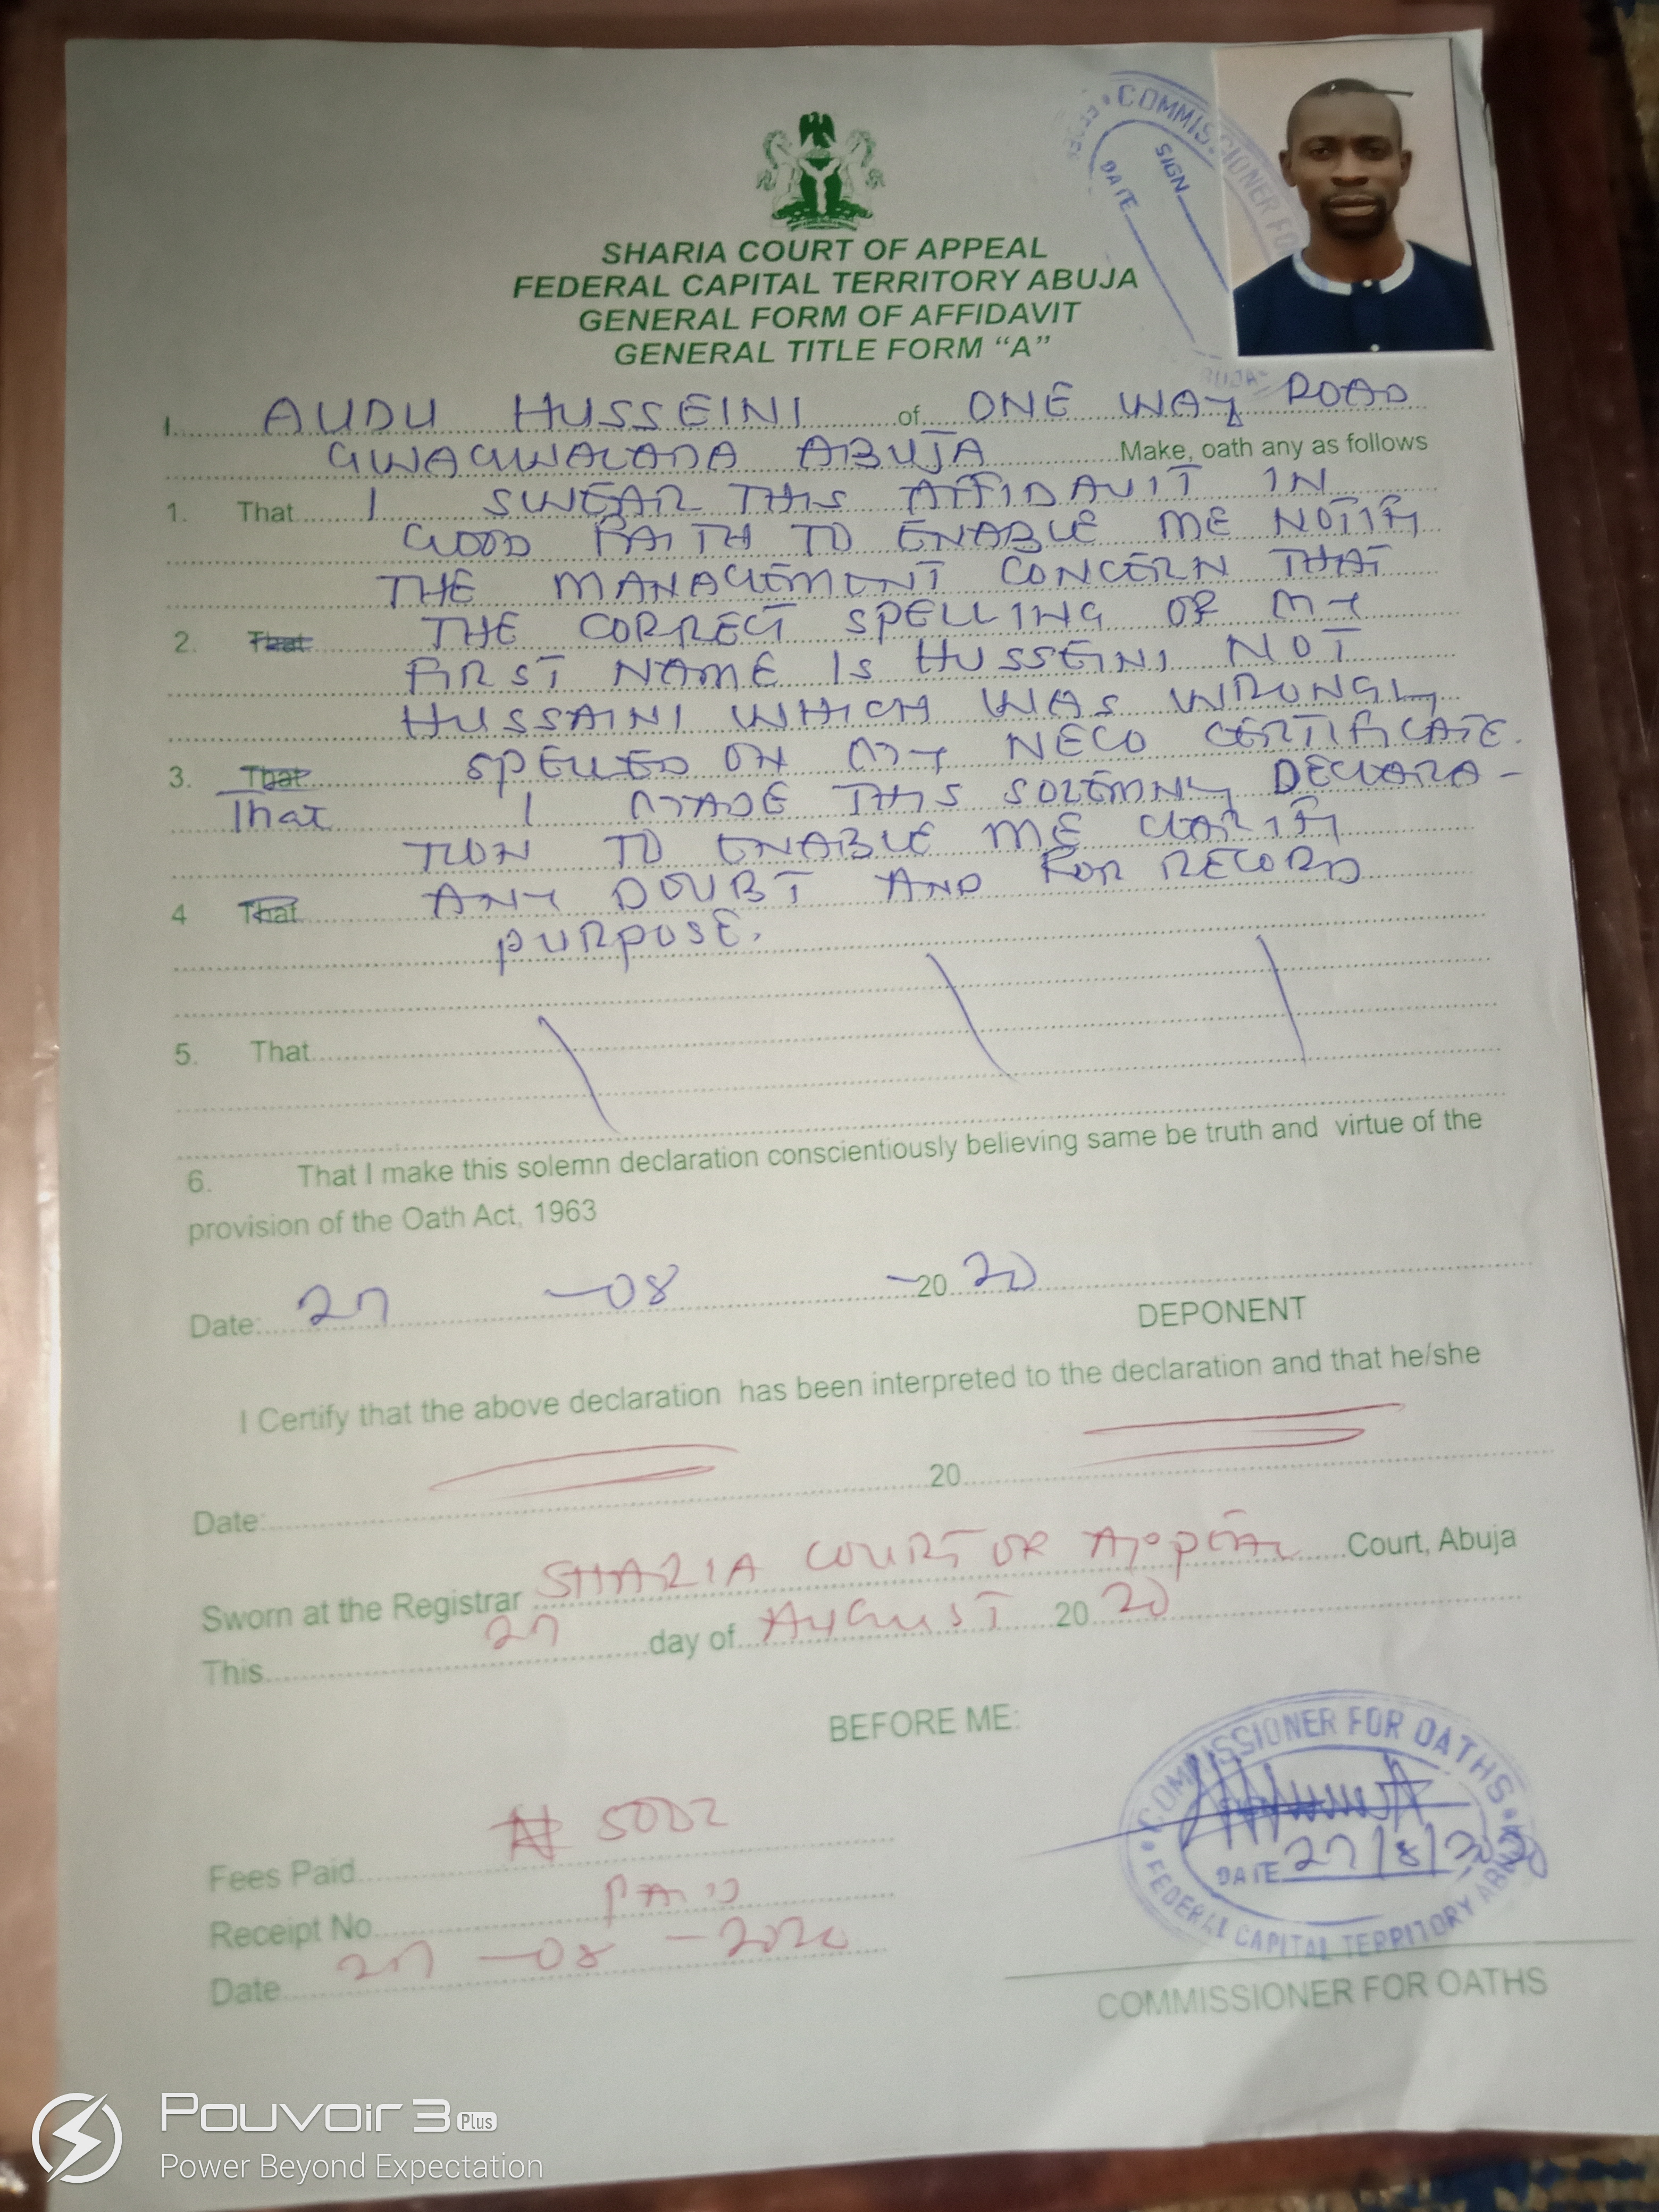 COMMISSIONER FO
SIGN
DATE
SHARIA COURT OF APPEAL
FEDERAL CAPITAL TERRITORY ABUJA
GENERAL FORM OF AFFIDAVIT
GENERAL TITLE FORM “A”
I. AUDU HUSSEINI of ONE WAY ROAD
GWAGWALADA ABUJA Make, oath any as follows
1. That I SWEAR THIS AFFIDAVIT IN
GOOD FAITH TO ENABLE ME NOTIFY
THE MANAGEMENT CONCERN THAT
2. That THE CORRECT SPELLING OF MY
FIRST NAME IS HUSSEINI NOT
HUSSAINI WHICH WAS WRONGLY
3. That SPELLED ON MY NECO CERTIFICATE.
That I MADE THIS SOLEMNLY DECLARA-
TION TO ENABLE ME CLARIFY
4 That ANY DOUBT AND FOR RECORD
PURPOSE.
5. That
6. That I make this solemn declaration conscientiously believing same be truth and virtue of the
provision of the Oath Act, 1963
Date: 27 -08 -2020
DEPONENT
I Certify that the above declaration has been interpreted to the declaration and that he/she
Date: 20
Sworn at the Registrar SHARIA COURT OF APPEAL Court, Abuja
This 27 day of AUGUST 2020
BEFORE ME:
COMMISSIONER FOR OATHS
DATE 27/8/2020
FEDERAL CAPITAL TERRITORY
Fees Paid ₦ 500
Receipt No. PAID
Date 27-08-2020
COMMISSIONER FOR OATHS
POUVOIR 3 Plus
Power Beyond Expectation